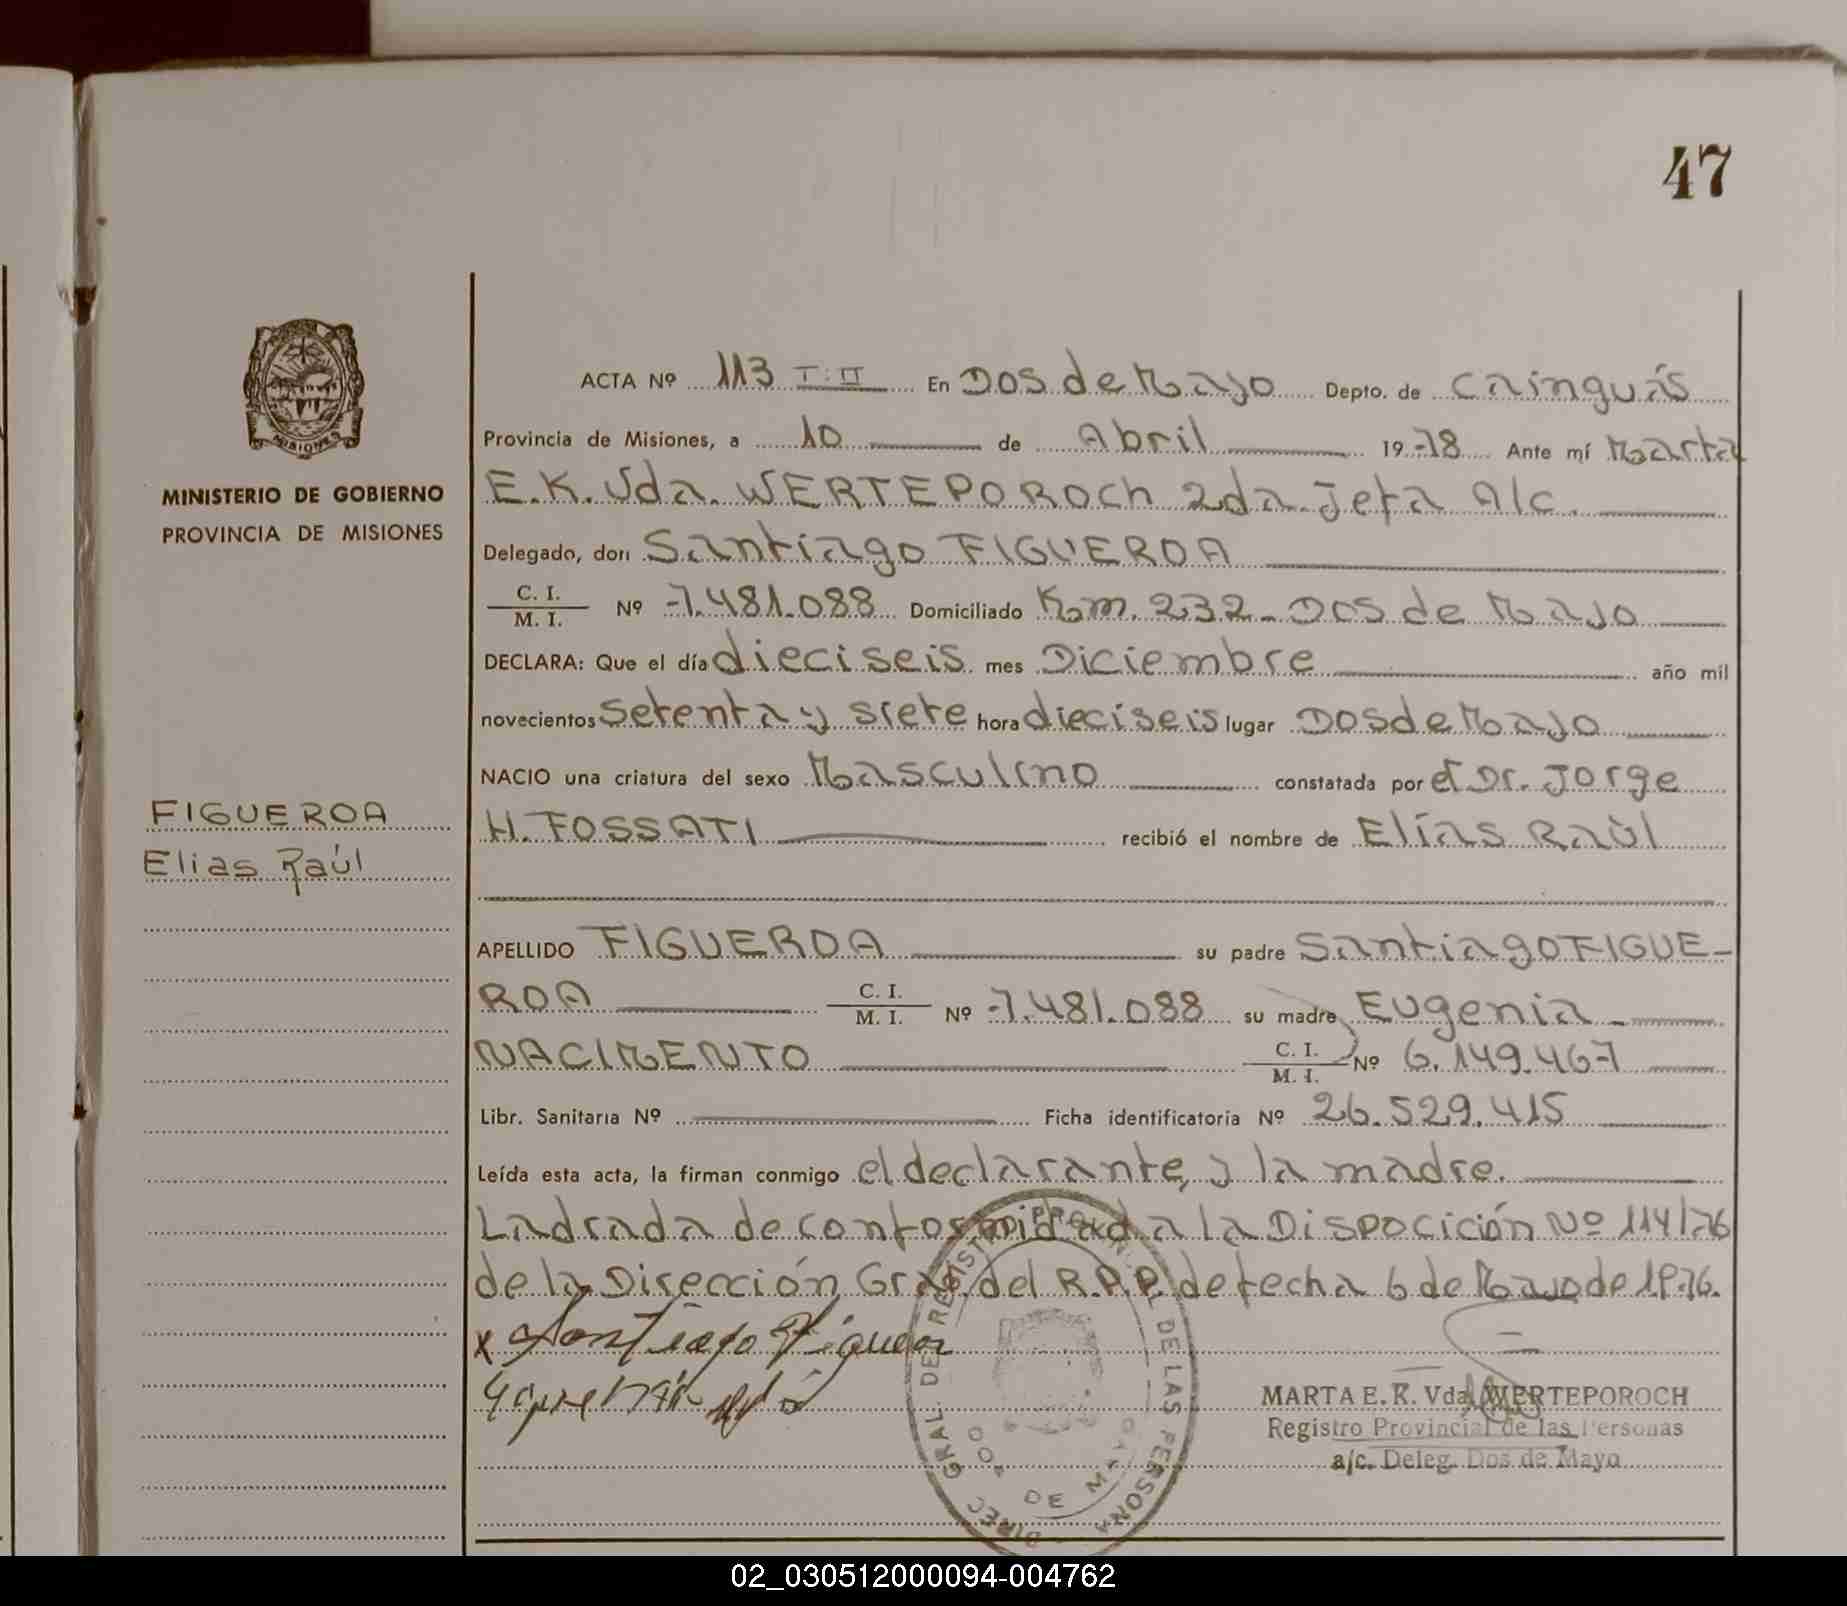 47
ACTA Nº 113 T: II En Dos de Mayo Depto. de Cainguás
Provincia de Misiones, a 10 de Abril 19 78 Ante mí Marta
E. K. Vda. WERTEPOROCH 2da. Jefa A/c.
Delegado, don Santiago FIGUEROA
C. I.
M. I. Nº 7.481.088 Domiciliado Km. 232 - Dos de Mayo
DECLARA: Que el día dieciseis mes Diciembre año mil
novecientos setenta y siete hora dieciseis lugar Dos de Mayo
NACIO una criatura del sexo Masculino constatada por el Dr. Jorge
H. FOSSATI recibió el nombre de Elías Raùl
APELLIDO FIGUEROA su padre Santiago FIGUE-
ROA C. I.
M. I. Nº 7.481.088 su madre Eugenia
NACIMENTO C. I.
M. I. Nº 6.149.467
Libr. Sanitaria Nº Ficha identificatoria Nº 26.529.415
Leída esta acta, la firman conmigo el declarante, y la madre.
Ladrada de conformidad a la Disposición Nº 114/76
de la Dirección Gral. del R.P.P. de fecha 6 de Mayo de 1976.
x Santiago Figueroa
MISIONES
MINISTERIO DE GOBIERNO
PROVINCIA DE MISIONES
FIGUEROA
Elias Raúl
DIREC GRAL. DE REGISTRO PROVINCIAL DE LAS PERSONA
DOS DE MAYO
MARTA E. K. Vda. WERTEPOROCH
Registro Provincial de las Personas
a/c. Deleg. Dos de Mayo
02_030512000094-004762